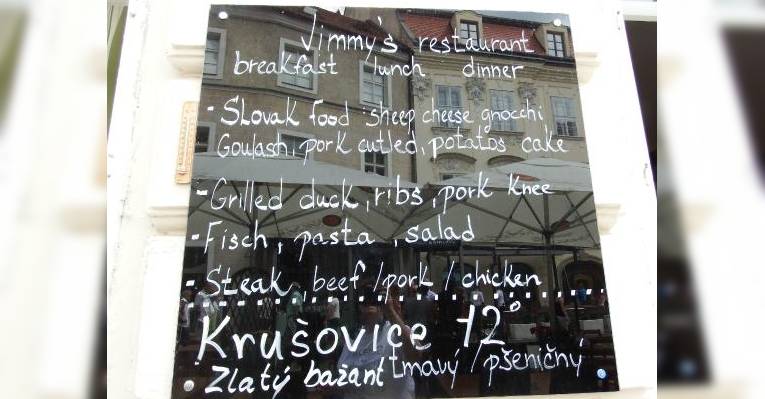 Jimmy's restaurant
breakfast lunch dinner
- Slovak food : sheep cheese gnocchi
Goulash, pork cutled, potatos cake
- Grilled duck, ribs, pork knee
- Fisch, pasta, salad
- Steak beef / pork / chicken
Krušovice 12°
Zlatý bažant tmavý / pšeničný